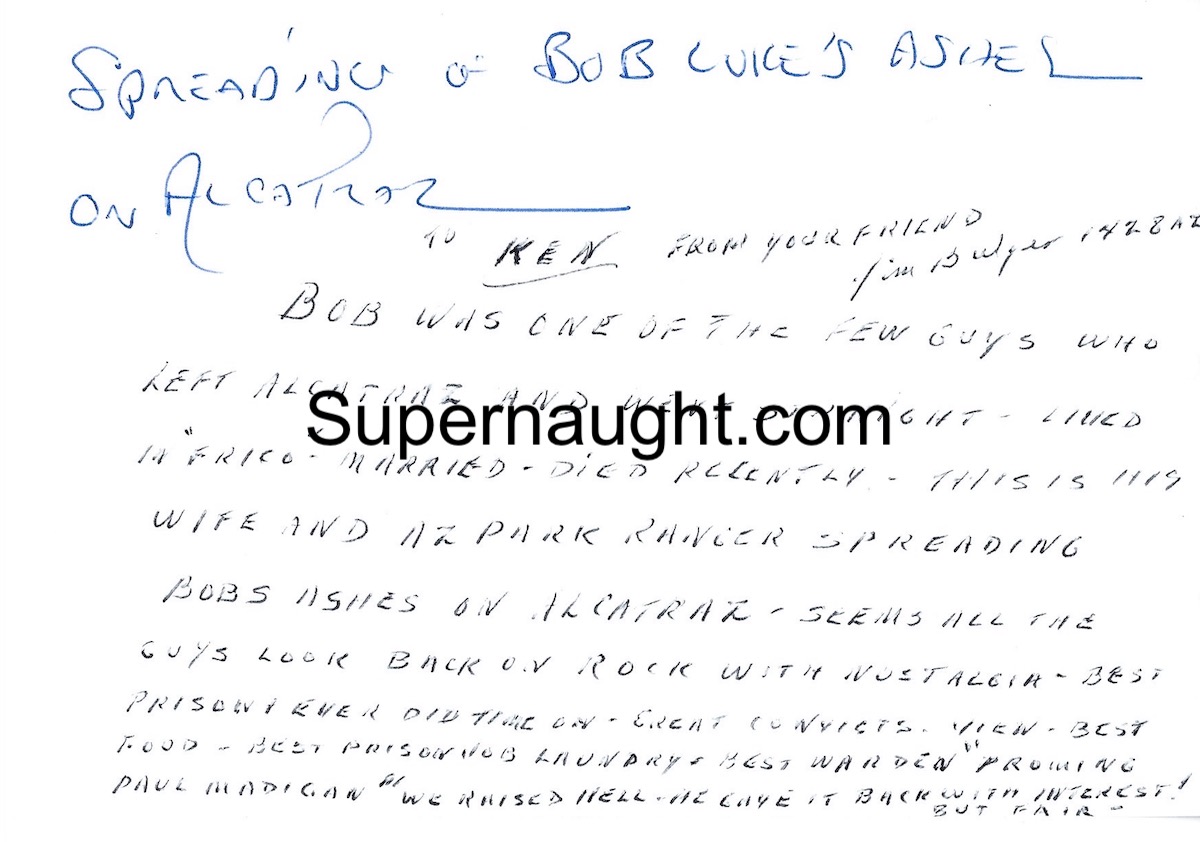 SPREADING OF BOB LUKE'S ASHES
ON ALCATRAZ
TO KEN FROM YOUR FRIEND
Jim Bulger 1428AZ
BOB WAS ONE OF THE FEW GUYS WHO
LEFT ALCATRAZ AND WENT STRAIGHT - LIVED
Supernaught.com
IN "FRICO - MARRIED - DIED RECENTLY - THIS IS HIS
WIFE AND AZ PARK RANGER SPREADING
BOBS ASHES ON ALCATRAZ - SEEMS ALL THE
GUYS LOOK BACK ON ROCK WITH NOSTALGIA - BEST
PRISON I EVER DID TIME ON - GREAT CONVICTS. VIEW - BEST
FOOD - BEST PRISON JOB LAUNDRY - BEST WARDEN "PROMING
PAUL MADIGAN" WE RAISED HELL - HE GAVE IT BACK WITH INTEREST!
BUT FAIR -